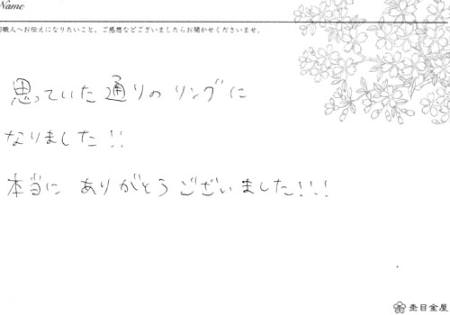 Name
職人へお伝えになりたいこと、ご感想などございましたらお聞かせくださいませ。
思っていた通りのリングに
なりました!!
本当に ありがとうございました!!!
杢目金屋